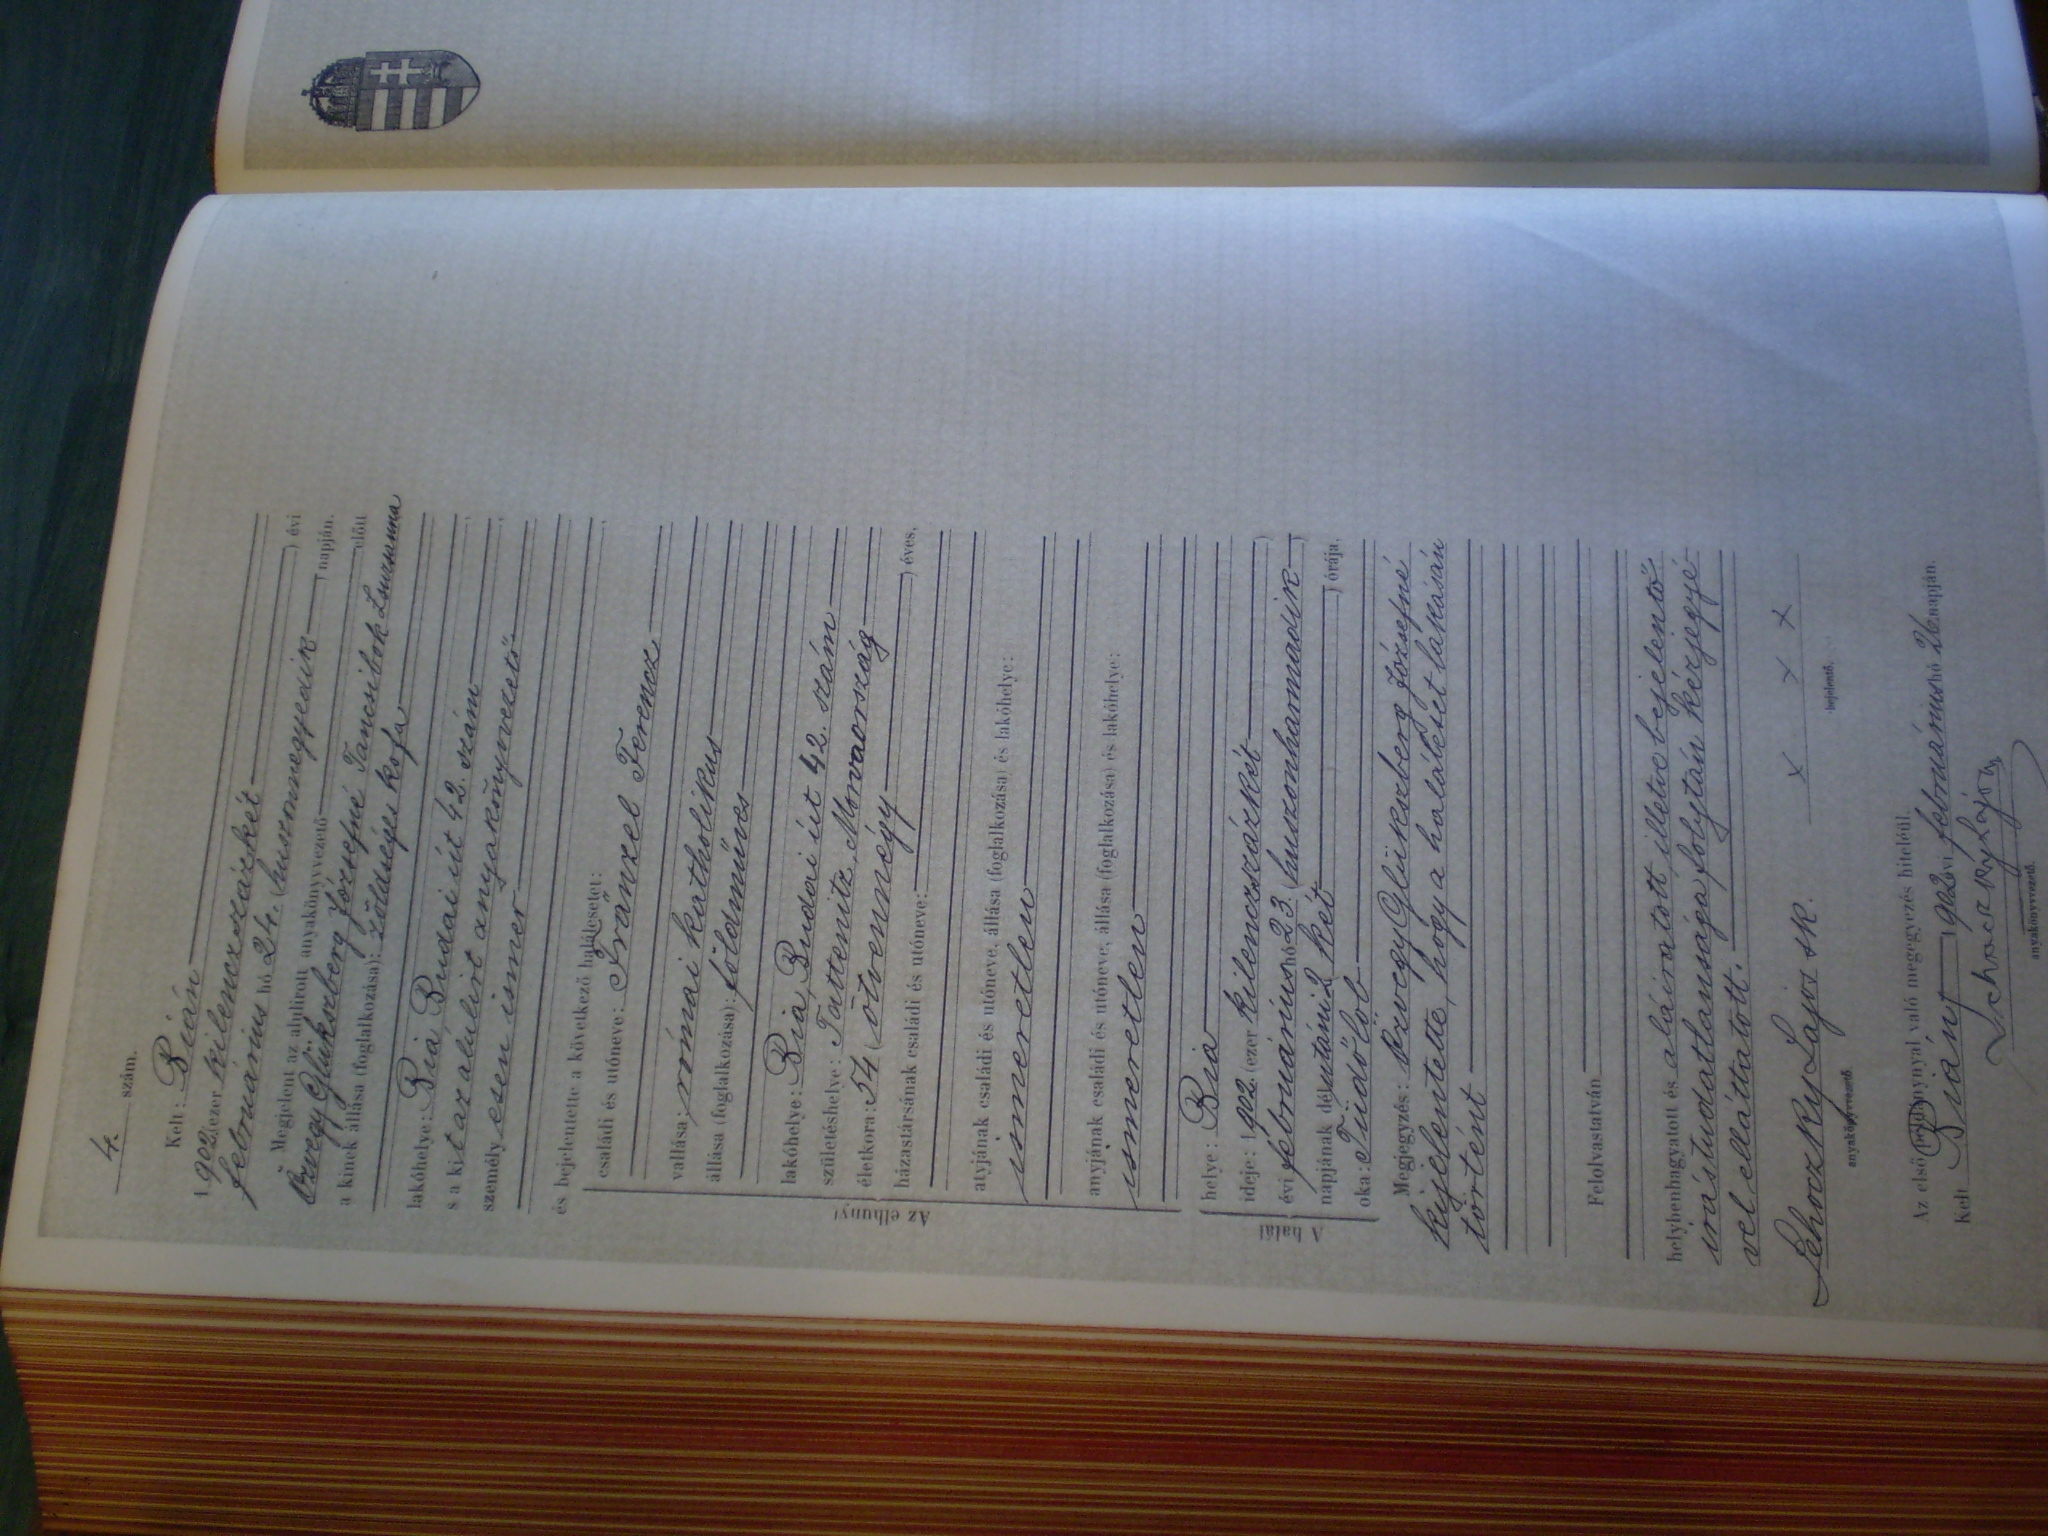 4. szám.
Kelt: Bián
1902 (ezer kilenczszázkét) évi
február­ius hó 24. (huszonnegyedik) napján.
Megjelent az alulirott anyakönyvvezető előtt
Özvegy Glükszberg Józsefné Tancsibok Zsuzsanna
a kinek állása (foglalkozása): zöldséges kofa
lakóhelye: Bia, Budai út 42. szám
s a kit az alulirt anyakönyvvezető
személyesen ismer
és bejelentette a következő halálesetet:
Az elhunyt
családi és utóneve: Fränzel Ferencz
vallása: római katholikus
állása (foglalkozása): földműves
lakóhelye: Bia, Budai út 42. szám
születéshelye: Tattenitz, Morvaország
életkora: 54 (ötvennégy) éves,
házastársának családi és utóneve:
atyjának családi és utóneve, állása (foglalkozása) és lakóhelye:
ismeretlen
anyjának családi és utóneve, állása (foglalkozása) és lakóhelye:
ismeretlen
A halál
helye: Bia
ideje: 1902. (ezer kilenczszázkét)
évi februárius hó 23. (huszonharmadik)
napjának délutáni 2 (két) órája,
oka: Tüdőlob
Megjegyzés: özvegy Glükszberg Józsefné
kijelentette, hogy a haláleset lakásán
történt
Felolvastatván
helybenhagyatott és aláiratott illetve bejelentő
irástudatlansága folytán kézjegyé-
vel elláttatott.
Lehoczky Lajos sk. x x x
anyakönyvvezető. bejelentő.
Az első példánynyal való megegyezés hiteléül.
Kelt Bián, 1902 évi februárius hó 26 napján.
Lehoczky Lajos
anyakönyvvezető.